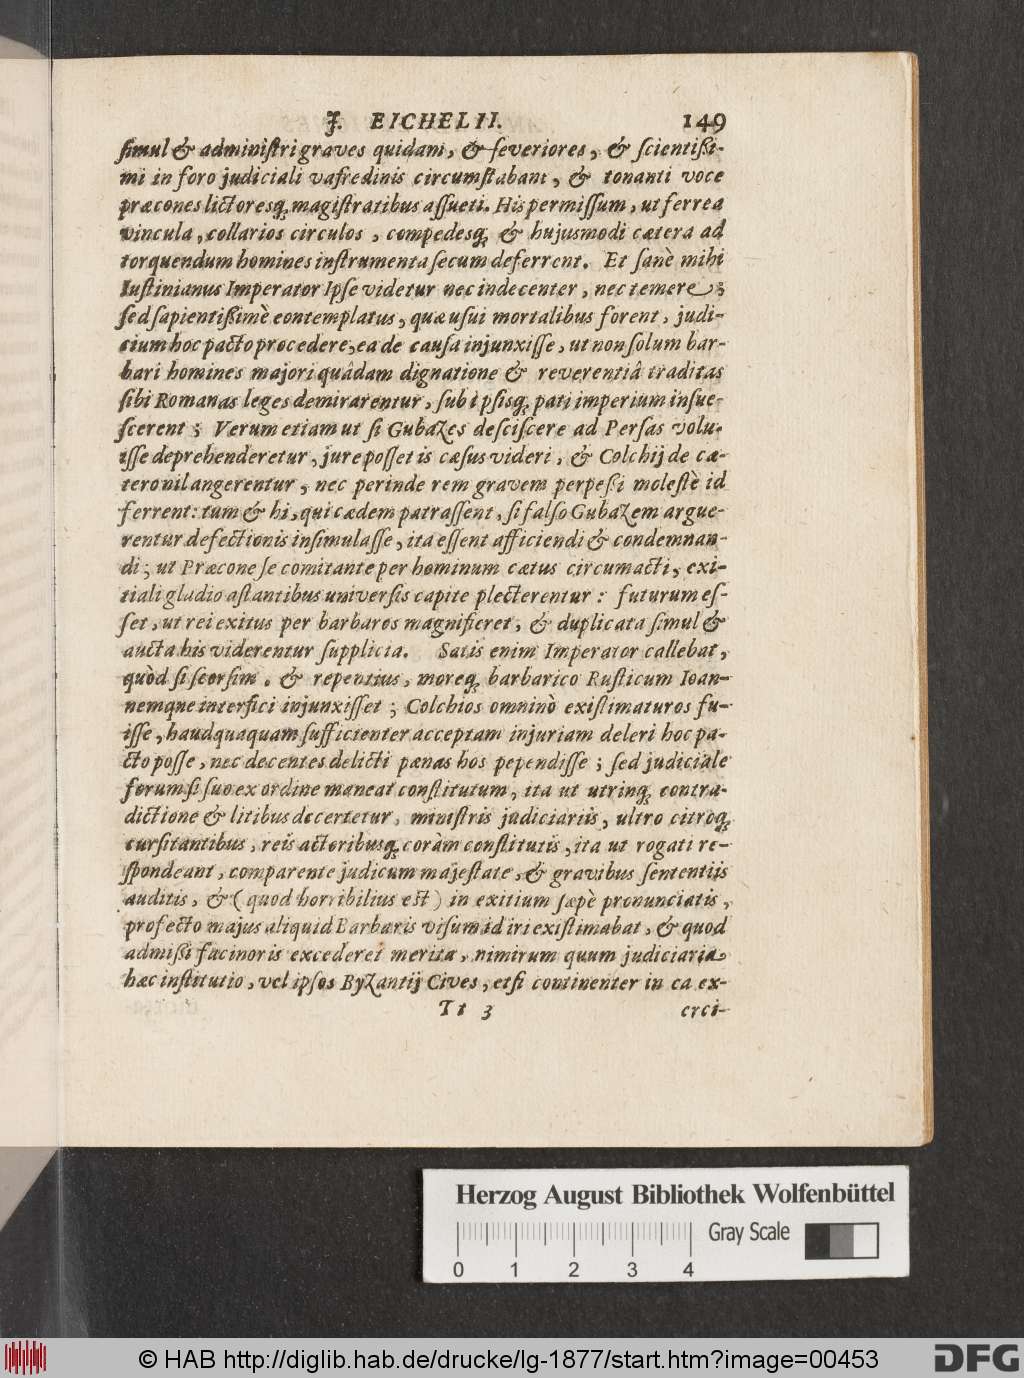 J. EICHELII. 149
ſimul & adminiſtri graves quidam, & ſeveriores, & ſcientißi-
mi in foro judiciali vafredinis circumſtabant, & tonanti voce
præcones lictoresq; magiſtratibus aſſueti. His permiſſum, ut ferrea
vincula, collarios circulos, compedesq; & hujusmodi cætera ad
torquendum homines inſtrumenta ſecum deferrent. Et ſanè mihi
Iuſtinianus Imperator Ipſe videtur nec indecenter, nec temerè;
ſed ſapientißimè contemplatus, quæ uſui mortalibus forent, judi-
cium hoc pacto procedere, ea de cauſa injunxiſſe, ut non ſolum bar-
bari homines majori quâdam dignatione & reverentiâ traditas
ſibi Romanas leges demirarentur, ſub ipſisq; pati imperium inſue-
ſcerent; Verum etiam ut ſi Gubazes deſciſcere ad Perſas volu-
iſſe deprehenderetur, jure poſſet is cæſus videri, & Colchij de cæ-
tero nil angerentur, nec perinde rem gravem perpeßi moleſtè id
ferrent: tum & hi, qui cædem patraſſent, ſi falſo Gubazem argue-
rentur defectionis inſimulaſſe, ita eſſent afficiendi & condemnan-
di; ut Præcone ſe comitante per hominum cætus circumacti, exi-
tiali gladio aſtantibus univerſis capite plecterentur: futurum eſ-
ſet, ut rei exitus per barbaros magnifieret, & duplicata ſimul &
aucta his viderentur ſupplicia. Satis enim Imperator callebat,
quòd ſi ſeorſim, & repentius, moreq; barbarico Ruſticum Ioan-
nemque interfici injunxiſſet; Colchios omninò exiſtimaturos fu-
iſſe, haudquaquam ſufficienter acceptam injuriam deleri hoc pa-
cto poſſe, nec decentes delicti pœnas hos pependiſſe; ſed judiciale
forum ſi ſuo ex ordine maneat conſtitutum, ita ut utrinq; contra-
dictione & litibus decertetur, miniſtris judiciariis, ultro citroq;
curſitantibus, reis actoribusq; coràm conſtitutis, ita ut rogati re-
ſpondeant, comparente judicum majeſtate, & gravibus ſententiis
auditis, & (quod horribilius eſt) in exitium ſæpè pronunciatis,
profecto majus aliquid Barbaris viſum id iri exiſtimabat, & quod
admißi facinoris excederet merita, nimirum quum judiciaria
hæc inſtitutio, vel ipſos Byzantij Cives, etſi continenter in ea ex-
Tt 3 erci-
Herzog August Bibliothek Wolfenbüttel
Gray Scale
0 1 2 3 4
© HAB http://diglib.hab.de/drucke/lg-1877/start.htm?image=00453
DFG